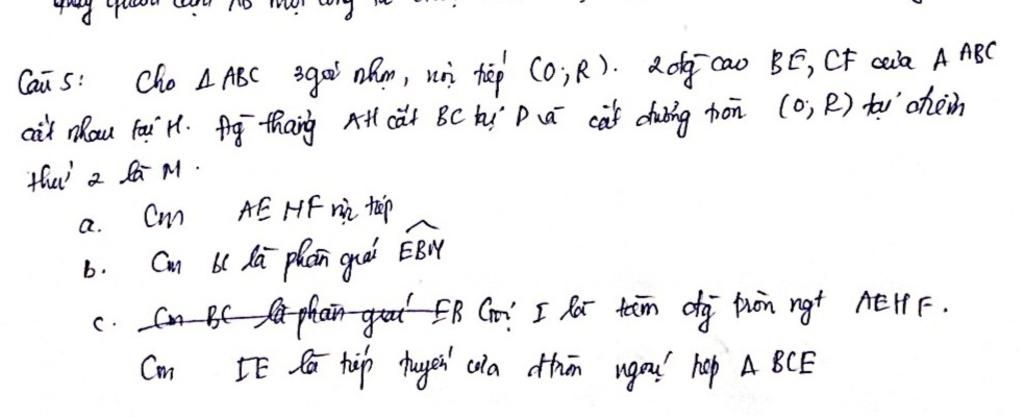 quay quanh cạnh AB một
Câu 5: Cho Δ ABC 3 góc nhọn, nội tiếp (O;R). 2 đg cao BE, CF của Δ ABC
cắt nhau tại H. Đg thẳng AH cắt BC tại D và cắt đường tròn (O; R) tại điểm
thứ 2 là M.
a. Cm AEHF nội tiếp
b. Cm BC là phân giác EBM
c. Cm BC là phân giác EB Gọi I là tâm đg tròn ngt AEHF.
Cm IE là tiếp tuyến của đtròn ngoại tiếp Δ BCE